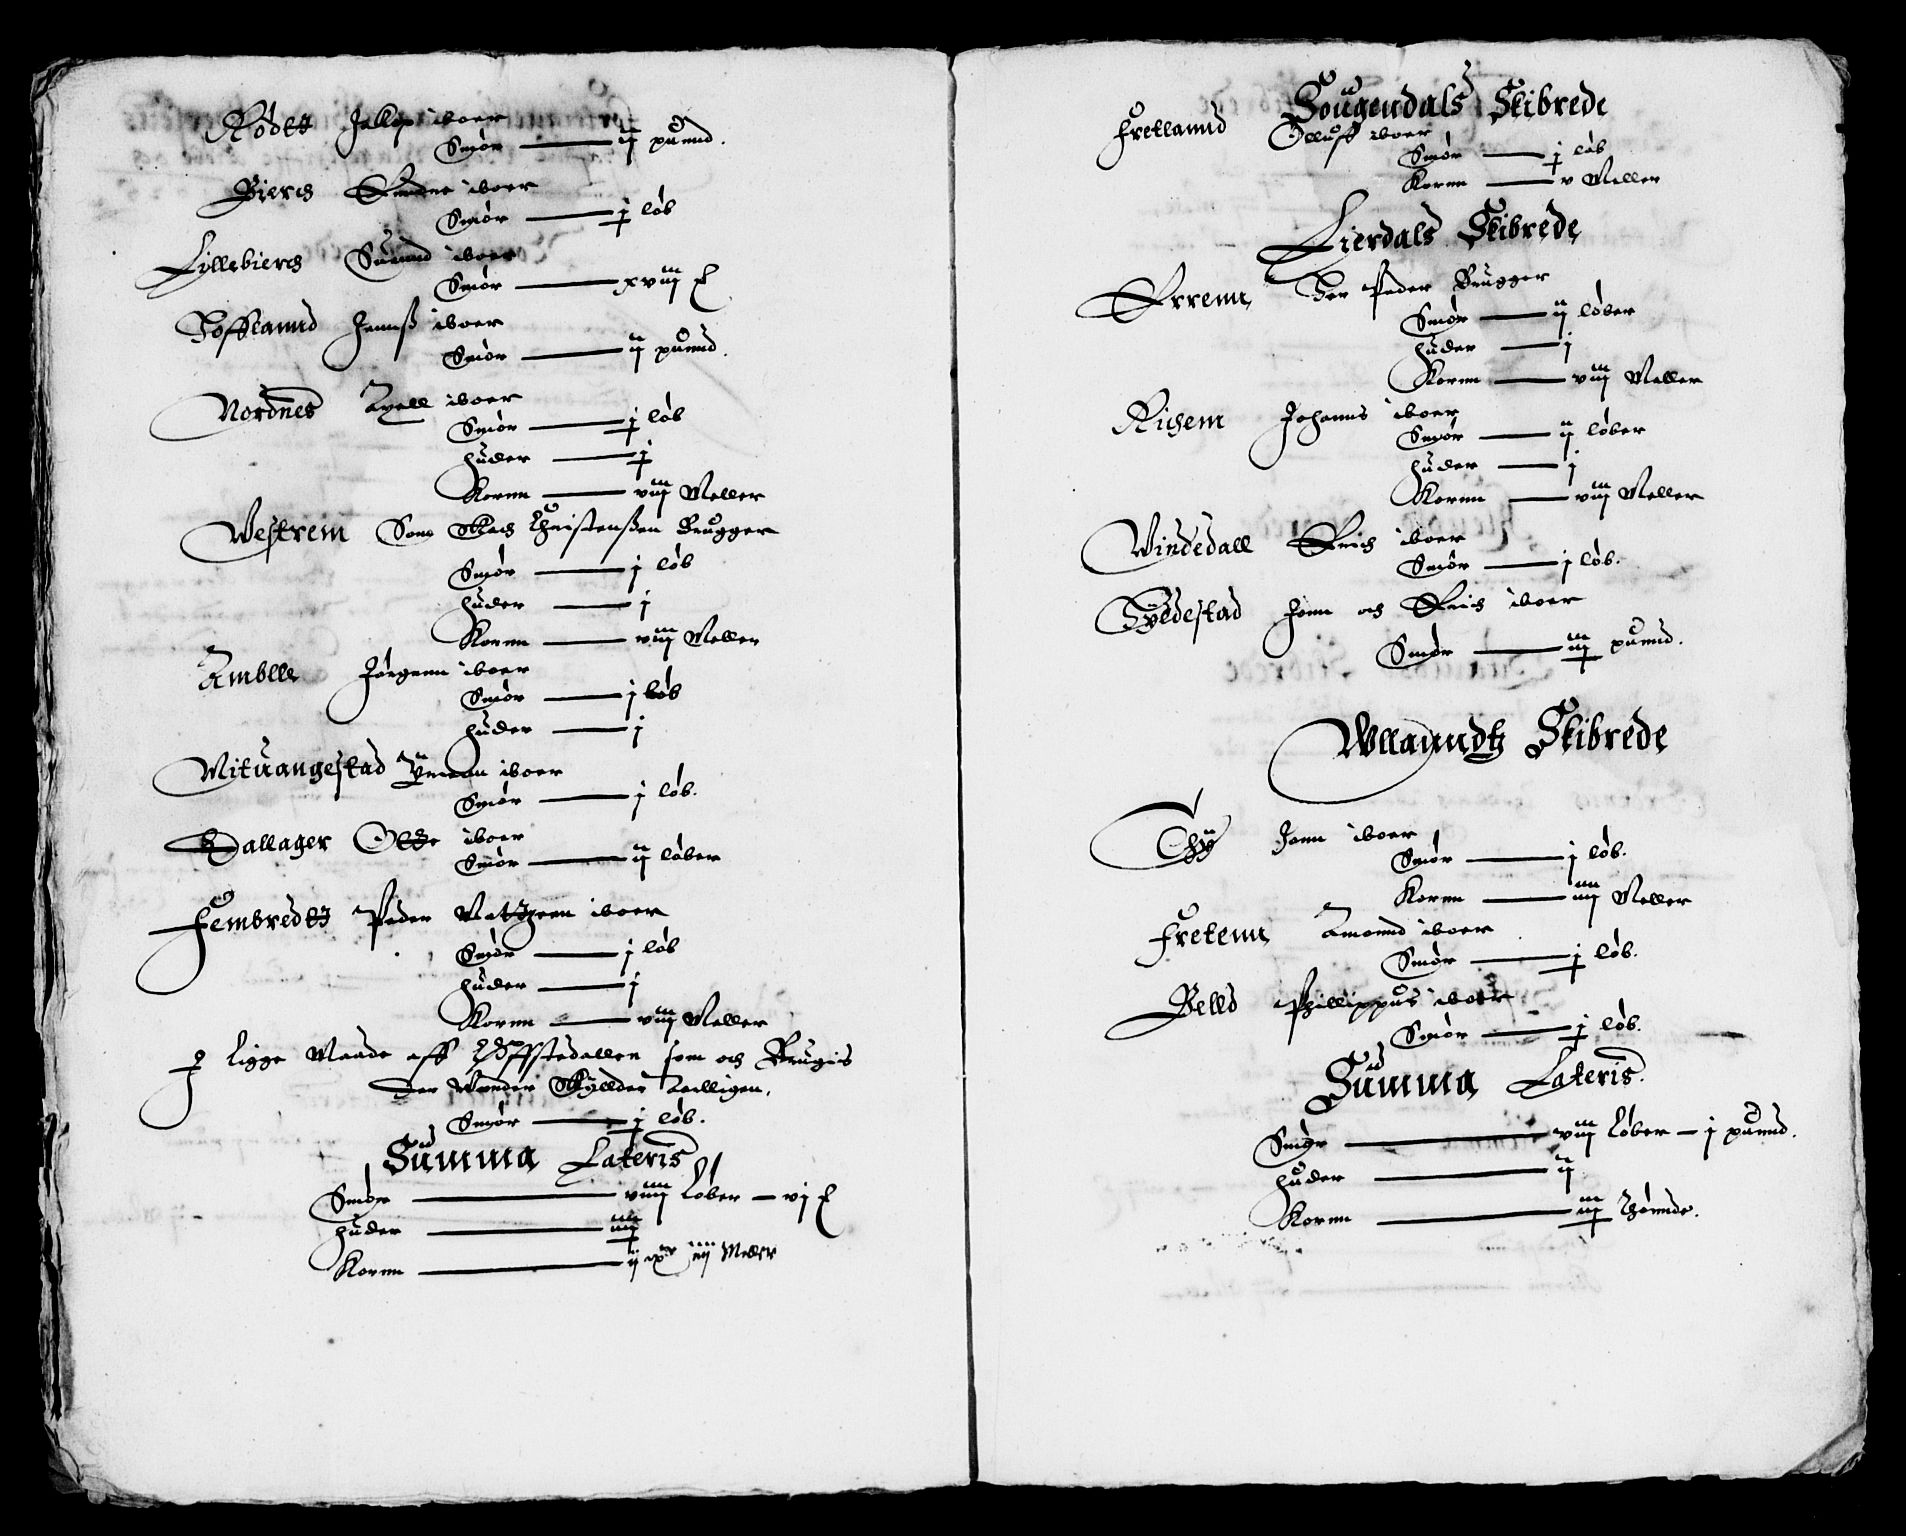 Rødtt Jakop iboer
Smør — ij puund.
Bierg iboer
Smør — j løb
Lyllebierg Siuund iboer
Smør — xviij
Toffttannd Jennß iboer
Smør — ij puund.
Nordnes Axell iboer
Smør — j løb
huder — j
Kornn — viij Meller
Westrem Som Mads Christenßen Brugger
Smør — j løb
huder — j
Kornn — viij Meller
Amblle Jørgenn iboer
Smør — j løb
huder — j
Mituangestad iboer
Smør — j løb.
Dallager Otte iboer
Smør — ij løber
Fembredtt Peder Matzenn iboer
Smør — j løb
huder — j
Kornn — viij Meller
J ligge Maade aff som och Brugis
der Wunder
Smør — j løb.
Summa Lateris
Smør — viiij Løber — vj
huder — iiij
Kornn — ij iiij Meller
Sougendals Skibrede
Fretlannd Olluff iboer
Smør — j løb
Kornn — v Meller
Lierdals Skibrede
Errenn Her Peder Brugger
Smør — ij løber
huder — j
Kornn — viij Meller
Richem Johanns iboer
Smør — ij løber
huder — j
Kornn — viij Meller
Windedall Erich iboer
Smør — j løb.
Tyldestad Jonn och Erich iboer
Smør — iij puund.
Wllanndtz Skibrede
Thy Jonn iboer
Smør — j løb.
Kornn — iiij Meller
Fretenn Amonnd iboer
Smør — j løb.
Bells Phillippus iboer
Smør — j løb.
Summa Lateris.
Smør — viij løber — j puund.
huder — ij
Kornn — iij Thønnde.